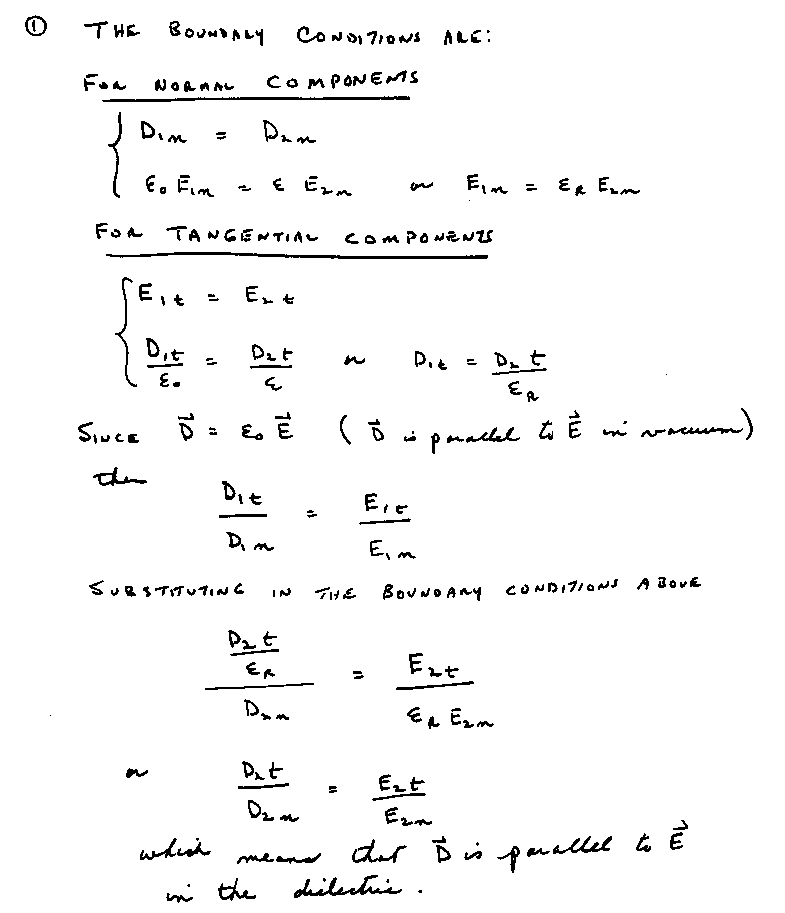 ① THE BOUNDARY CONDITIONS ARE:
FOR NORMAL COMPONENTS
D₁ₙ = D₂ₙ
ε₀ E₁ₙ = ε E₂ₙ or E₁ₙ = ε_R E₂ₙ
FOR TANGENTIAL COMPONENTS
E₁t = E₂t
D₁t/ε₀ = D₂t/ε or D₁t = D₂t/ε_R
SINCE D⃗ = ε₀ E⃗ (D⃗ is parallel to E⃗ in vacuum)
then
D₁t/D₁ₙ = E₁t/E₁ₙ
SUBSTITUTING IN THE BOUNDARY CONDITIONS ABOVE
(D₂t/ε_R)/D₂ₙ = E₂t/(ε_R E₂ₙ)
or D₂t/D₂ₙ = E₂t/E₂ₙ
which means that D⃗ is parallel to E⃗
in the dielectric.